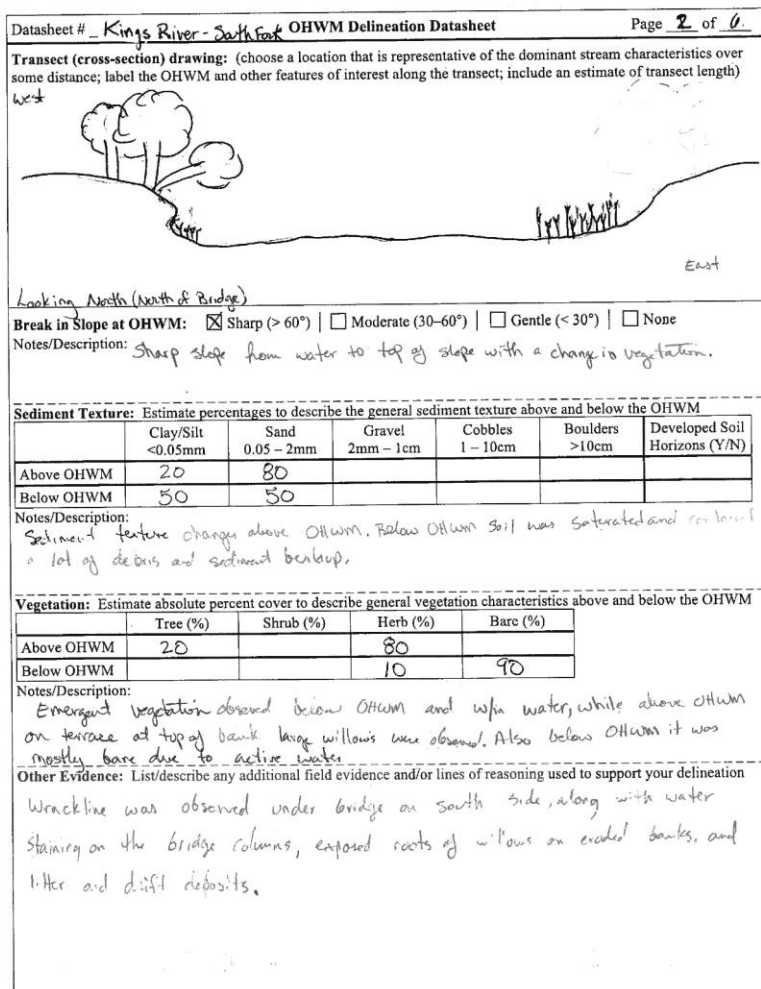 Datasheet # _ Kings River - South Fork OHWM Delineation Datasheet Page 2 of 6
Transect (cross-section) drawing: (choose a location that is representative of the dominant stream characteristics over
some distance; label the OHWM and other features of interest along the transect; include an estimate of transect length)
West
East
Looking North (North of Bridge)
Break in Slope at OHWM: ☒ Sharp (> 60°) | ☐ Moderate (30–60°) | ☐ Gentle (< 30°) | ☐ None
Notes/Description: Sharp slope from water to top of slope with a change in vegetation.
Sediment Texture: Estimate percentages to describe the general sediment texture above and below the OHWM
Clay/Silt <0.05mm Sand 0.05 – 2mm Gravel 2mm – 1cm Cobbles 1 – 10cm Boulders >10cm Developed Soil Horizons (Y/N)
Above OHWM 20 80
Below OHWM 50 50
Notes/Description:
Sediment texture changes above OHWM. Below OHWM soil was saturated and
a lot of debris and sediment
Vegetation: Estimate absolute percent cover to describe general vegetation characteristics above and below the OHWM
Tree (%) Shrub (%) Herb (%) Bare (%)
Above OHWM 20 80
Below OHWM 10 90
Notes/Description:
Emergent vegetation observed below OHWM and w/in water, while above OHWM
on terrace at top of bank large willows were observed. Also below OHWM it was
mostly bare due to active water
Other Evidence: List/describe any additional field evidence and/or lines of reasoning used to support your delineation
Wrackline was observed under bridge on south side, along with water
staining on the bridge columns, exposed roots of willows on eroded banks, and
litter and drift deposits.